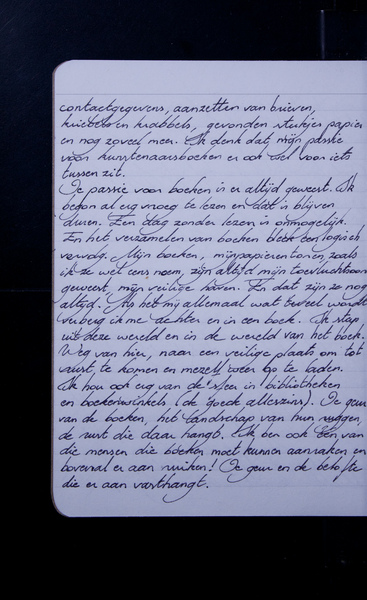 contactgegevens, aanzetten van brieven,
kriebels en krabbels, gevonden stukjes papier
en nog zoveel meer. Ik denk dat mijn passie
voor kunstenaarsboeken er ook wel voor iets
tussen zit.
De passie voor boeken is er altijd geweest. Ik
begon al erg vroeg te lezen en dat is blijven
duren. Een dag zonder lezen is onmogelijk.
En het verzamelen van boeken bleek een logisch
vervolg. Mijn boeken, mijn papieren tonen, zoals
ik ze wel eens noem, zijn altijd mijn toevluchtsoord
geweest, mijn veilige haven. En dat zijn ze nog
altijd. Als het mij allemaal wat teveel wordt
verberg ik me achter en in een boek. Ik stap
uit deze wereld en in de wereld van het boek.
Weg van hier, naar een veilige plaats om tot
rust te komen en mezelf weer op te laden.
Ik hou ook erg van de sfeer in bibliotheken
en boekenwinkels (de goede alleszins). De geur
van de boeken, het landschap van hun ruggen,
de rust die daar hangt. Ik ben ook één van
die mensen die boeken moet kunnen aanraken en
bovenal er aan ruiken! De geur en de belofte
die er aan vasthangt.